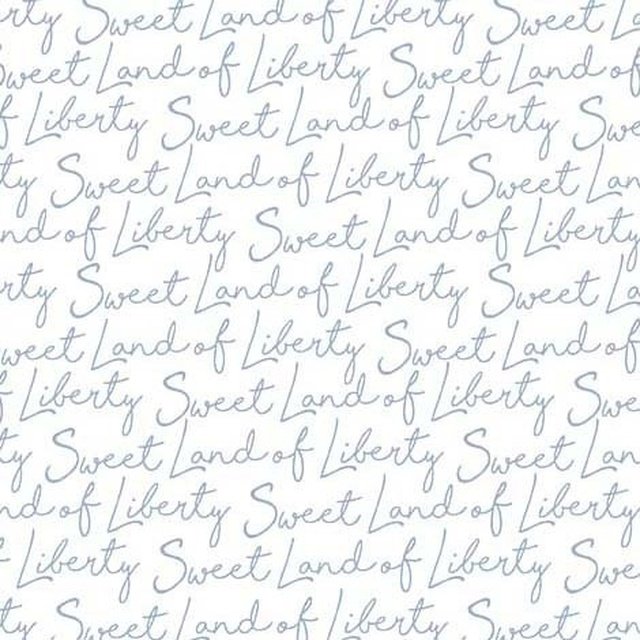 rty Sweet Land of Liberty Sweet L
Sweet Land of Liberty Sweet Land of
f Liberty Sweet Land of Liberty Swe
ty Sweet Land of Liberty Sweet Lan
nd of Liberty Sweet Land of Liberty
rty Sweet Land of Liberty Sweet La
weet Land of Liberty Sweet Land of
f Liberty Sweet Land of Liberty Swe
ty Sweet Land of Liberty Sweet Lan
nd of Liberty Sweet Land of Liberty
f Liberty Sweet Land of Liberty Swe
ty Sweet Land of Liberty Sweet Lan